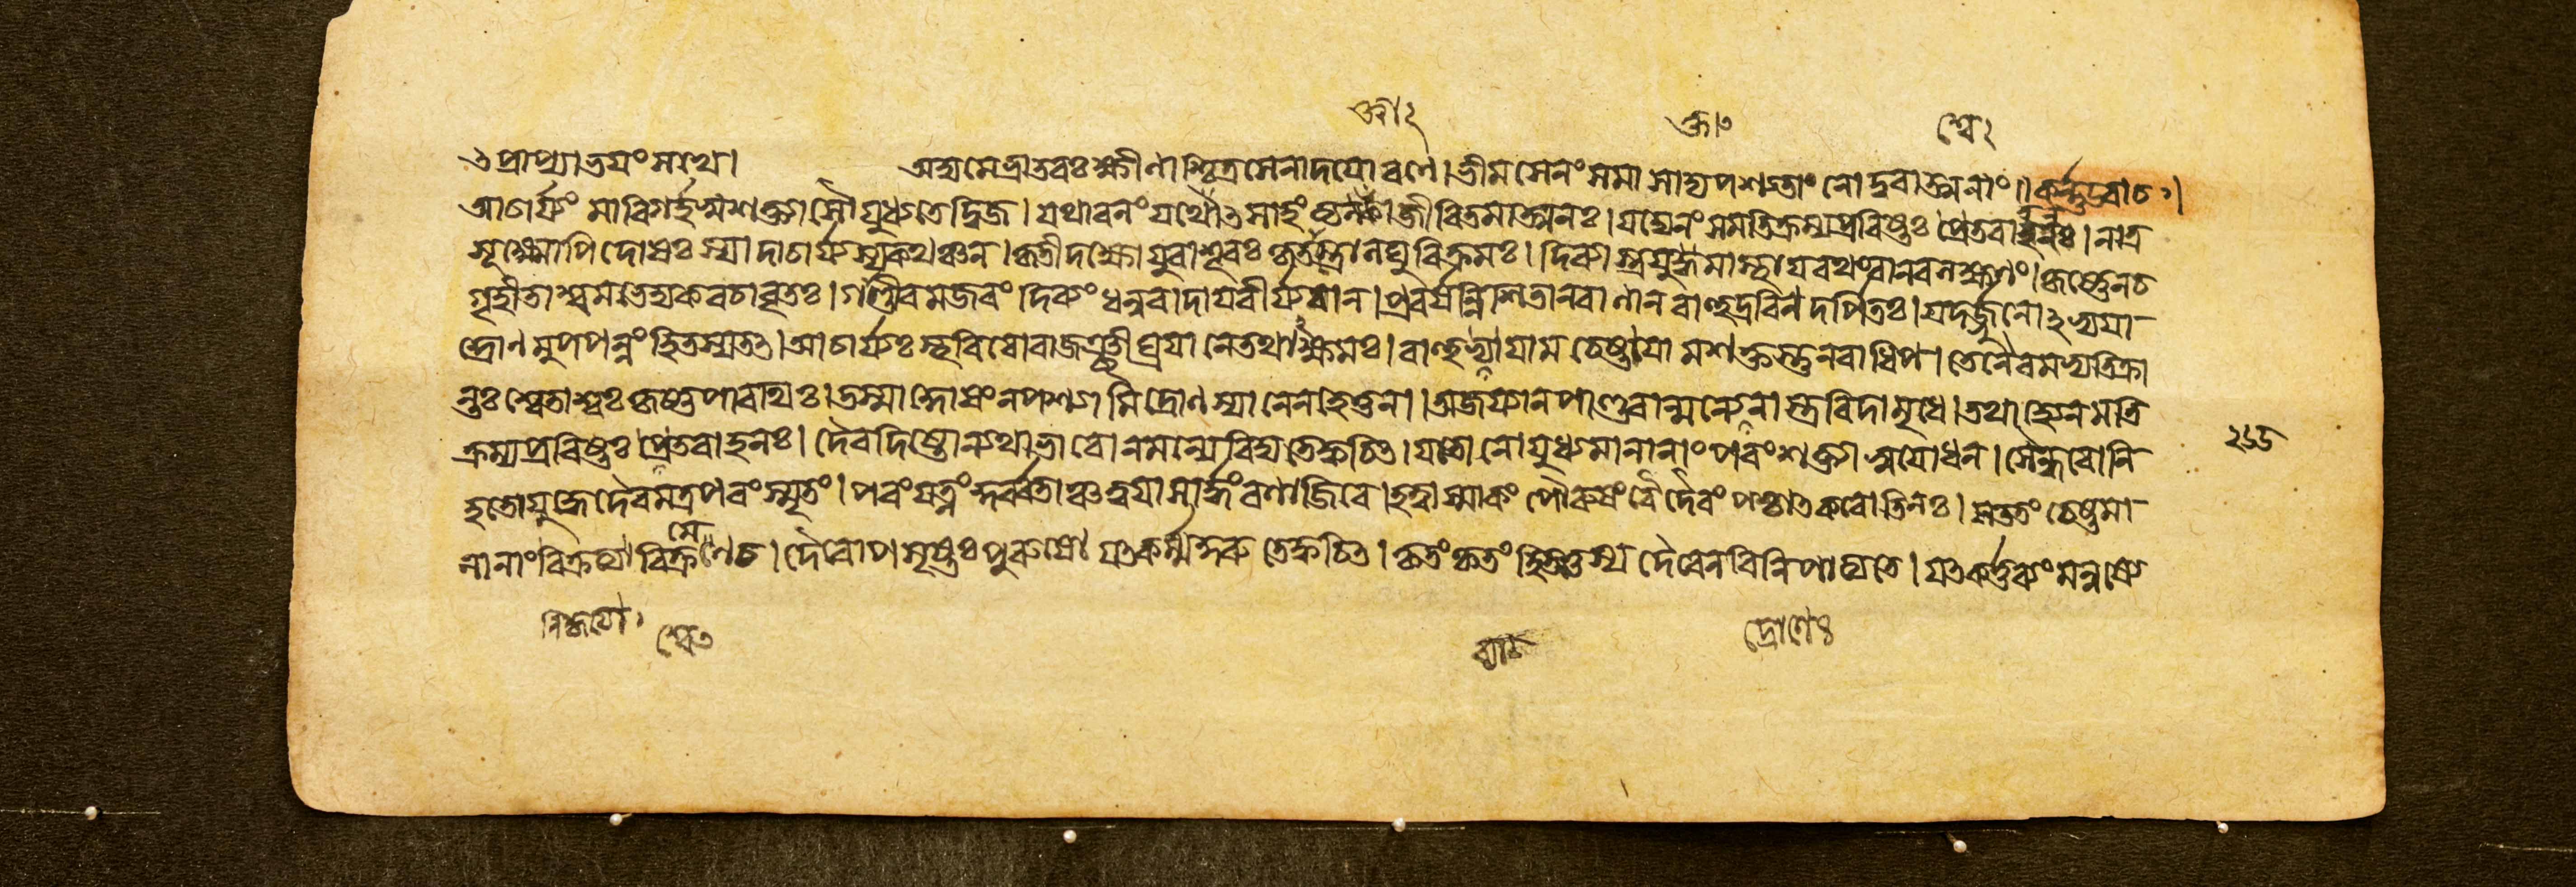 ৎপ্রাপ্স্যাভযং সখে। অদ্য মে ভ্রাতরঃ ক্ষীণাশ্চিত্রসেনাদযো রণে। ভীমসেনং সমাসাদ্য পশ্যতাং নো দুরাত্মনাং॥ কর্ণ্ণ উবাচ।
আচার্য্যং মা বিগর্হস্ব শক্ত্যাসৌ যুধ্যতে দ্বিজ। যথাবলং যথোৎসাহং ত্যক্ত্বা জীবিতমাত্মনঃ। যদ্যেনং সমতিক্রম্য প্রবিষ্টঃ শ্বেতবাহনঃ। নাত্র
সূক্ষ্মোপি দোষঃ স্যাদাচার্য্যস্য কথঞ্চন। কৃতী দক্ষো যুবা শূরঃ কৃতাস্ত্রো লঘুবিক্রমঃ। দিব্যাস্ত্রযুক্তমাস্থায রথং বানরলক্ষণং। কৃষ্ণেন চ
গৃহীতাশ্বমভেদ্যকবচাবৃতঃ। গাণ্ডীবমজরং দিব্যং ধনুরাদায বীর্য্যবান। প্রবর্ষন্নিশিতান বাণান বাহুদ্রবিণদর্পিতঃ। যদর্জ্জুনোঽভ্যযা
দ্রোণমুপপন্নং হি তস্য তৎ। আচার্য্যঃ স্থবিরো রাজঞ্ছীঘ্রযানে তথাক্ষমঃ। বাহুব্যাযামচেষ্টাযামশক্তস্তু নরাধিপ। তেনৈবমভ্যতিক্রা
ন্তঃ শ্বেতাশ্বঃ কৃষ্ণসারথিঃ। তস্মাদ্দোষং ন পশ্যামি দ্রোণস্যানেন হেতুনা। অজয্যান পাণ্ডবান্মন্যে নাস্ত্রবিদা মৃধে। তথা হ্যেনমতি
ক্রম্য প্রবিষ্টঃ শ্বেতবাহনঃ। দৈবদিষ্টোন্যথাভাবো ন মন্যে বিদ্যতে ক্বচিৎ। যতো নো যুধ্যমানানাং পরং শক্ত্যা সুযোধন। সৈন্ধবো নি
হতো যুদ্ধে দৈবমত্র পরং স্মৃতং। পরং যত্নং কুর্ব্বতাঞ্চ ত্বযা সার্দ্ধং রণাজিরে। হত্বাস্মাকং পৌরুষং বৈ দৈবং পশ্চাৎ করোতি নঃ। সততং চেষ্টমা
নানাং নিকৃত্যা বিক্রমেণ চ। দৈবোপসৃষ্টঃ পুরুষো যৎ কর্ম্ম কুরুতে ক্বচিৎ। কৃতং কৃতং হি তত্তস্য দৈবেন বিনিপাত্যতে। যৎ কর্ত্তব্যং মনুষ্যে
দ্রোণেঃ